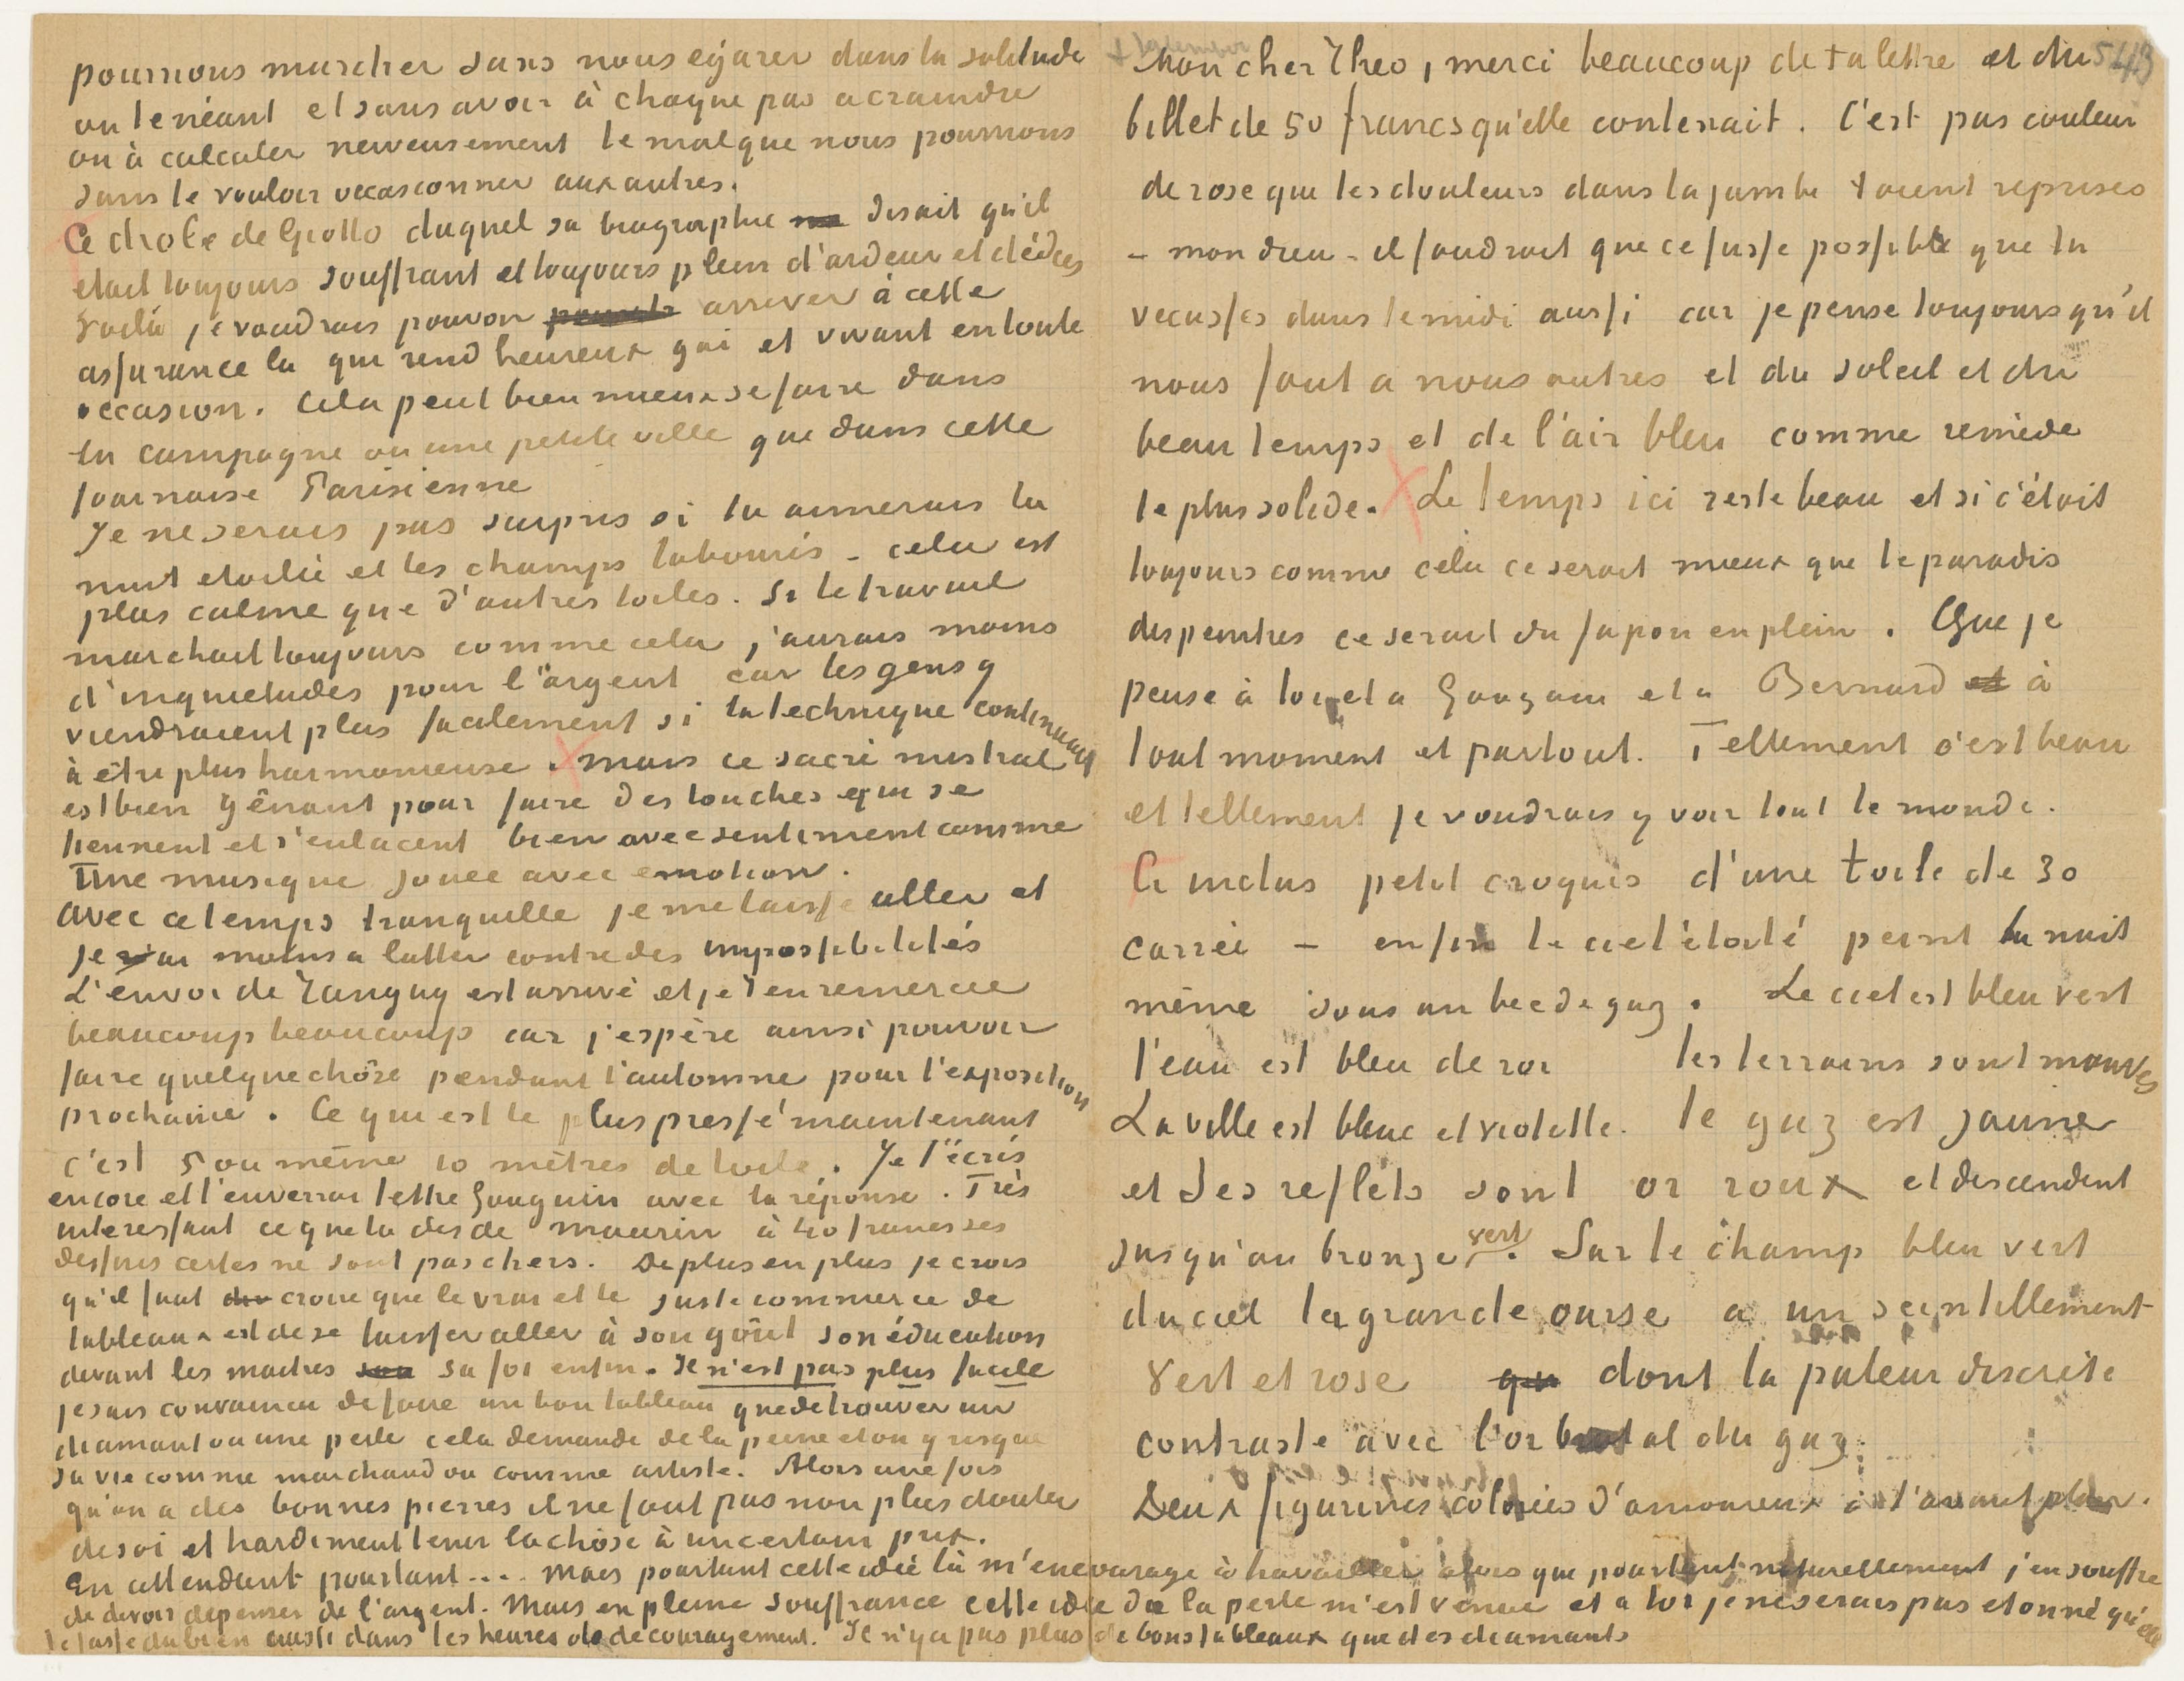 543
Mon cher Theo, merci beaucoup de ta lettre et du
billet de 50 francs qu'elle contenait. C'est pas couleur
de rose que les douleurs dans la jambe t'aient reprises
– mon dieu – il faudrait que ce fusse possible que tu
vecusses dans le midi aussi car je pense toujours qu'il
nous faut a nous autres et du soleil et du
beau temps et de l'air bleu comme remède
le plus solide. Le temps ici reste beau et si c'était
toujours comme cela ce serait mieux que le paradis
des peintres ce serait du Japon en plein. Que je
pense à toi et a Gauguin et a Bernard et à
tout moment et partout. Tellement c'est beau
et tellement je voudrais y voir tout le monde.
Ci inclus petit croquis d'une toile de 30
carrée – enfin le ciel étoilé peint la nuit
même sous un bec de gaz. Le ciel est bleu vert
l'eau est bleu de roi les terrains sont mauves
La ville est bleue et violette. le gaz est jaune
et des reflets sont or roux et descendent
jusqu'au bronze vert. Sur le champ bleu vert
du ciel la grande ourse a un scintillement
vert et rose dont la paleur discrète
contraste avec l'or brutal du gaz.
Deux figurines colorées d'amoureux à l'avant plan.
pourrions marcher sans nous egarer dans la solitude
ou le néant et sans avoir à chaque pas a craindre
ou à calculer nerveusement le mal que nous pourrions
sans le vouloir occasionner aux autres.
Ce drole de Giotto duquel sa biographie disait qu'il
etait toujours souffrant et toujours plein d'ardeur et d'idées
Voilà je voudrais pouvoir arriver à cette
assurance la qui rend heureux gai et vivant en toute
occasion. Cela peut bien mieux se faire dans
la campagne ou une petite ville que dans cette
fournaise Parisienne
Je ne serais pas surpris si tu aimerais la
nuit etoilée et les champs labourés – cela est
plus calme que d'autres toiles. Si le travail
marchait toujours comme cela j'aurais moins
d'inquietudes pour l'argent car les gens y
viendraient plus facilement si la technique continuait
à être plus harmonieuse. Mais ce sacré mistral
est bien gênant pour faire des touches qui se
tiennent et s'enlacent bien avec sentiment comme
une musique jouée avec emotion.
avec ce temps tranquille je me laisse aller et
je n'ai moins a lutter contre des impossibilités
L'envoi de Tanguy est arrivé et je t'en remercie
beaucoup beaucoup car j'espère ainsi pouvoir
faire quelque chôse pendant l'automne pour l'exposition
prochaine. Ce qui est le plus pressé maintenant
c'est 5 ou même 10 mètres de toile. Je t'écris
encore et t'enverrai lettre Gauguin avec la réponse. Très
interessant ce que tu dis de Maurin à 40 francs ses
dessins certes ne sont pas chers. De plus en plus je crois
qu'il faut croire que le vrai et le juste commerce de
tableaux est de se laisser aller à son goût son éducation
devant les maitres sa foi enfin. Il n'est pas plus facile
je suis convaincu de faire un bon tableau que de trouver un
diamant ou une perle cela demande de la peine et on y risque
sa vie comme marchand ou comme artiste. Alors une fois
qu'on a des bonnes pierres il ne faut pas non plus douter
de soi et hardiment tenir la chose à un certain prix.
En attendant pourtant .... Mais pourtant cette idée là m'encourage à travailler alors que pourtant naturellement j'en souffre
de devoir depenser de l'argent. Mais en pleine souffrance cette idée de la perle m'est venue et a toi je ne serais pas etonné qu'elle
te fasse du bien aussi dans les heures de découragement. Il n'y a pas plus de bons tableaux que des diamants